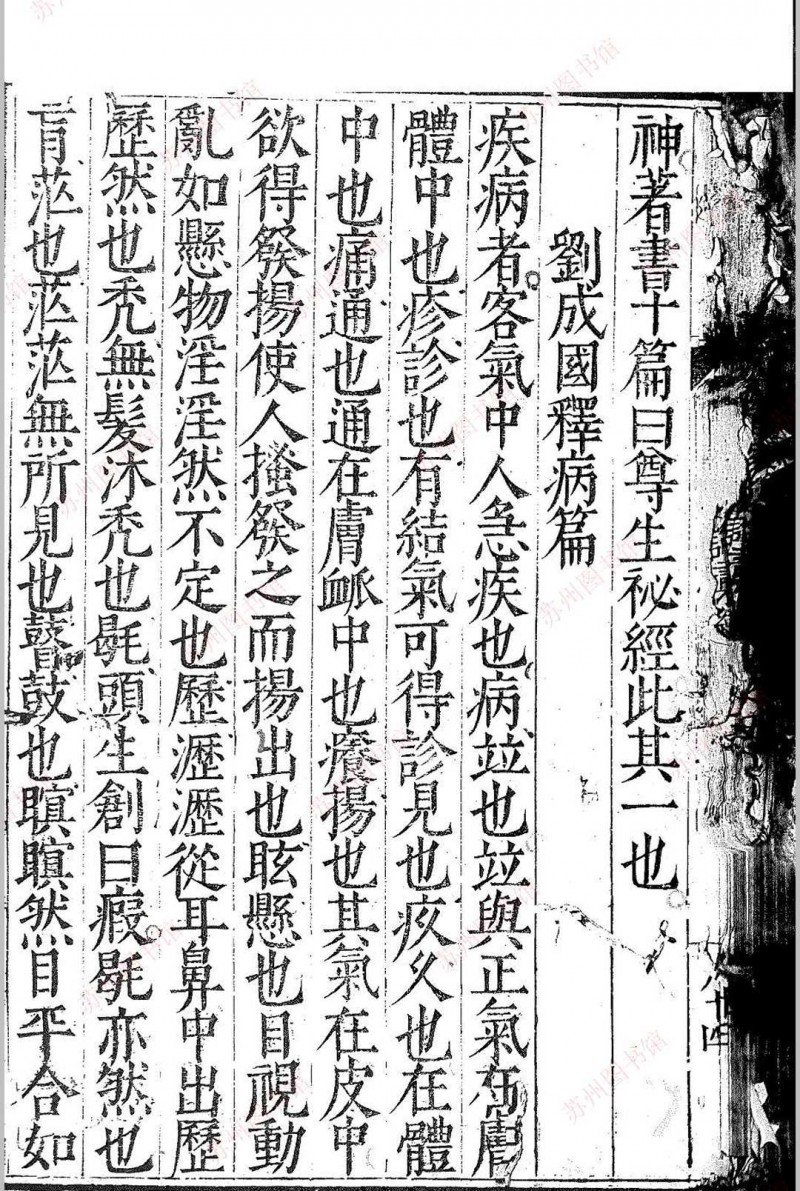 神著書十篇曰尊生祕經此其一也
劉成國釋病篇
疾病者客氣中人急疾也病竝也竝與正氣在膚
體中也疹診也有結氣可得診見也疚久也在體
中也痛通也通在膚衇中也癢揚也其氣在皮中
欲得發揚使人搔發之而揚出也眩懸也目視動
亂如懸物淫淫然不定也歷瀝瀝從耳鼻中出歷
歷然也禿無髮沐禿也毼頭生創曰瘕毼亦然也
盲茫也茫茫無所見也瞽鼓也瞑瞑然目平合如
八十四